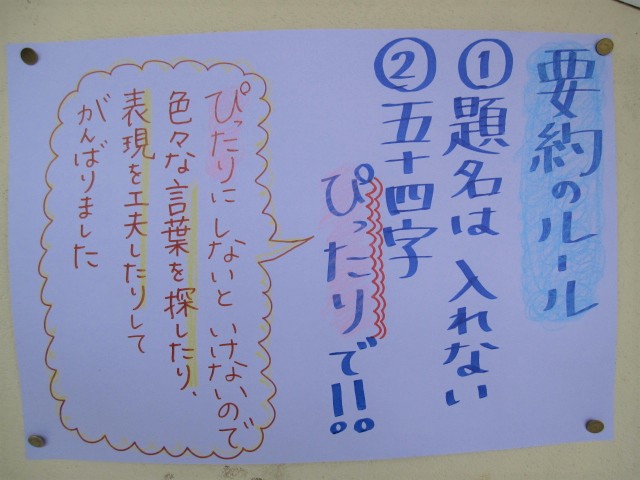 要約のルール
①題名は 入れない
②五十四字
ぴったりで!!
ぴったりに しないと いけないので
色々な言葉を探したり、
表現を工夫したりして
がんばりました